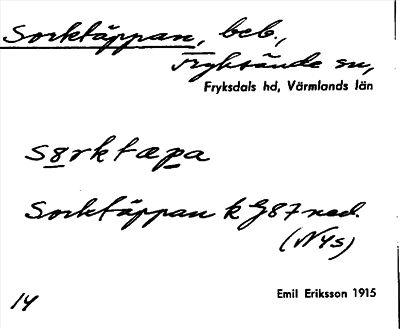 Sorktäppan, beb.,
Fryksände sn,
Fryksdals hd, Värmlands län
sørktæpa
Sorktäppan k G87 ned.
(Nys)
14
Emil Eriksson 1915